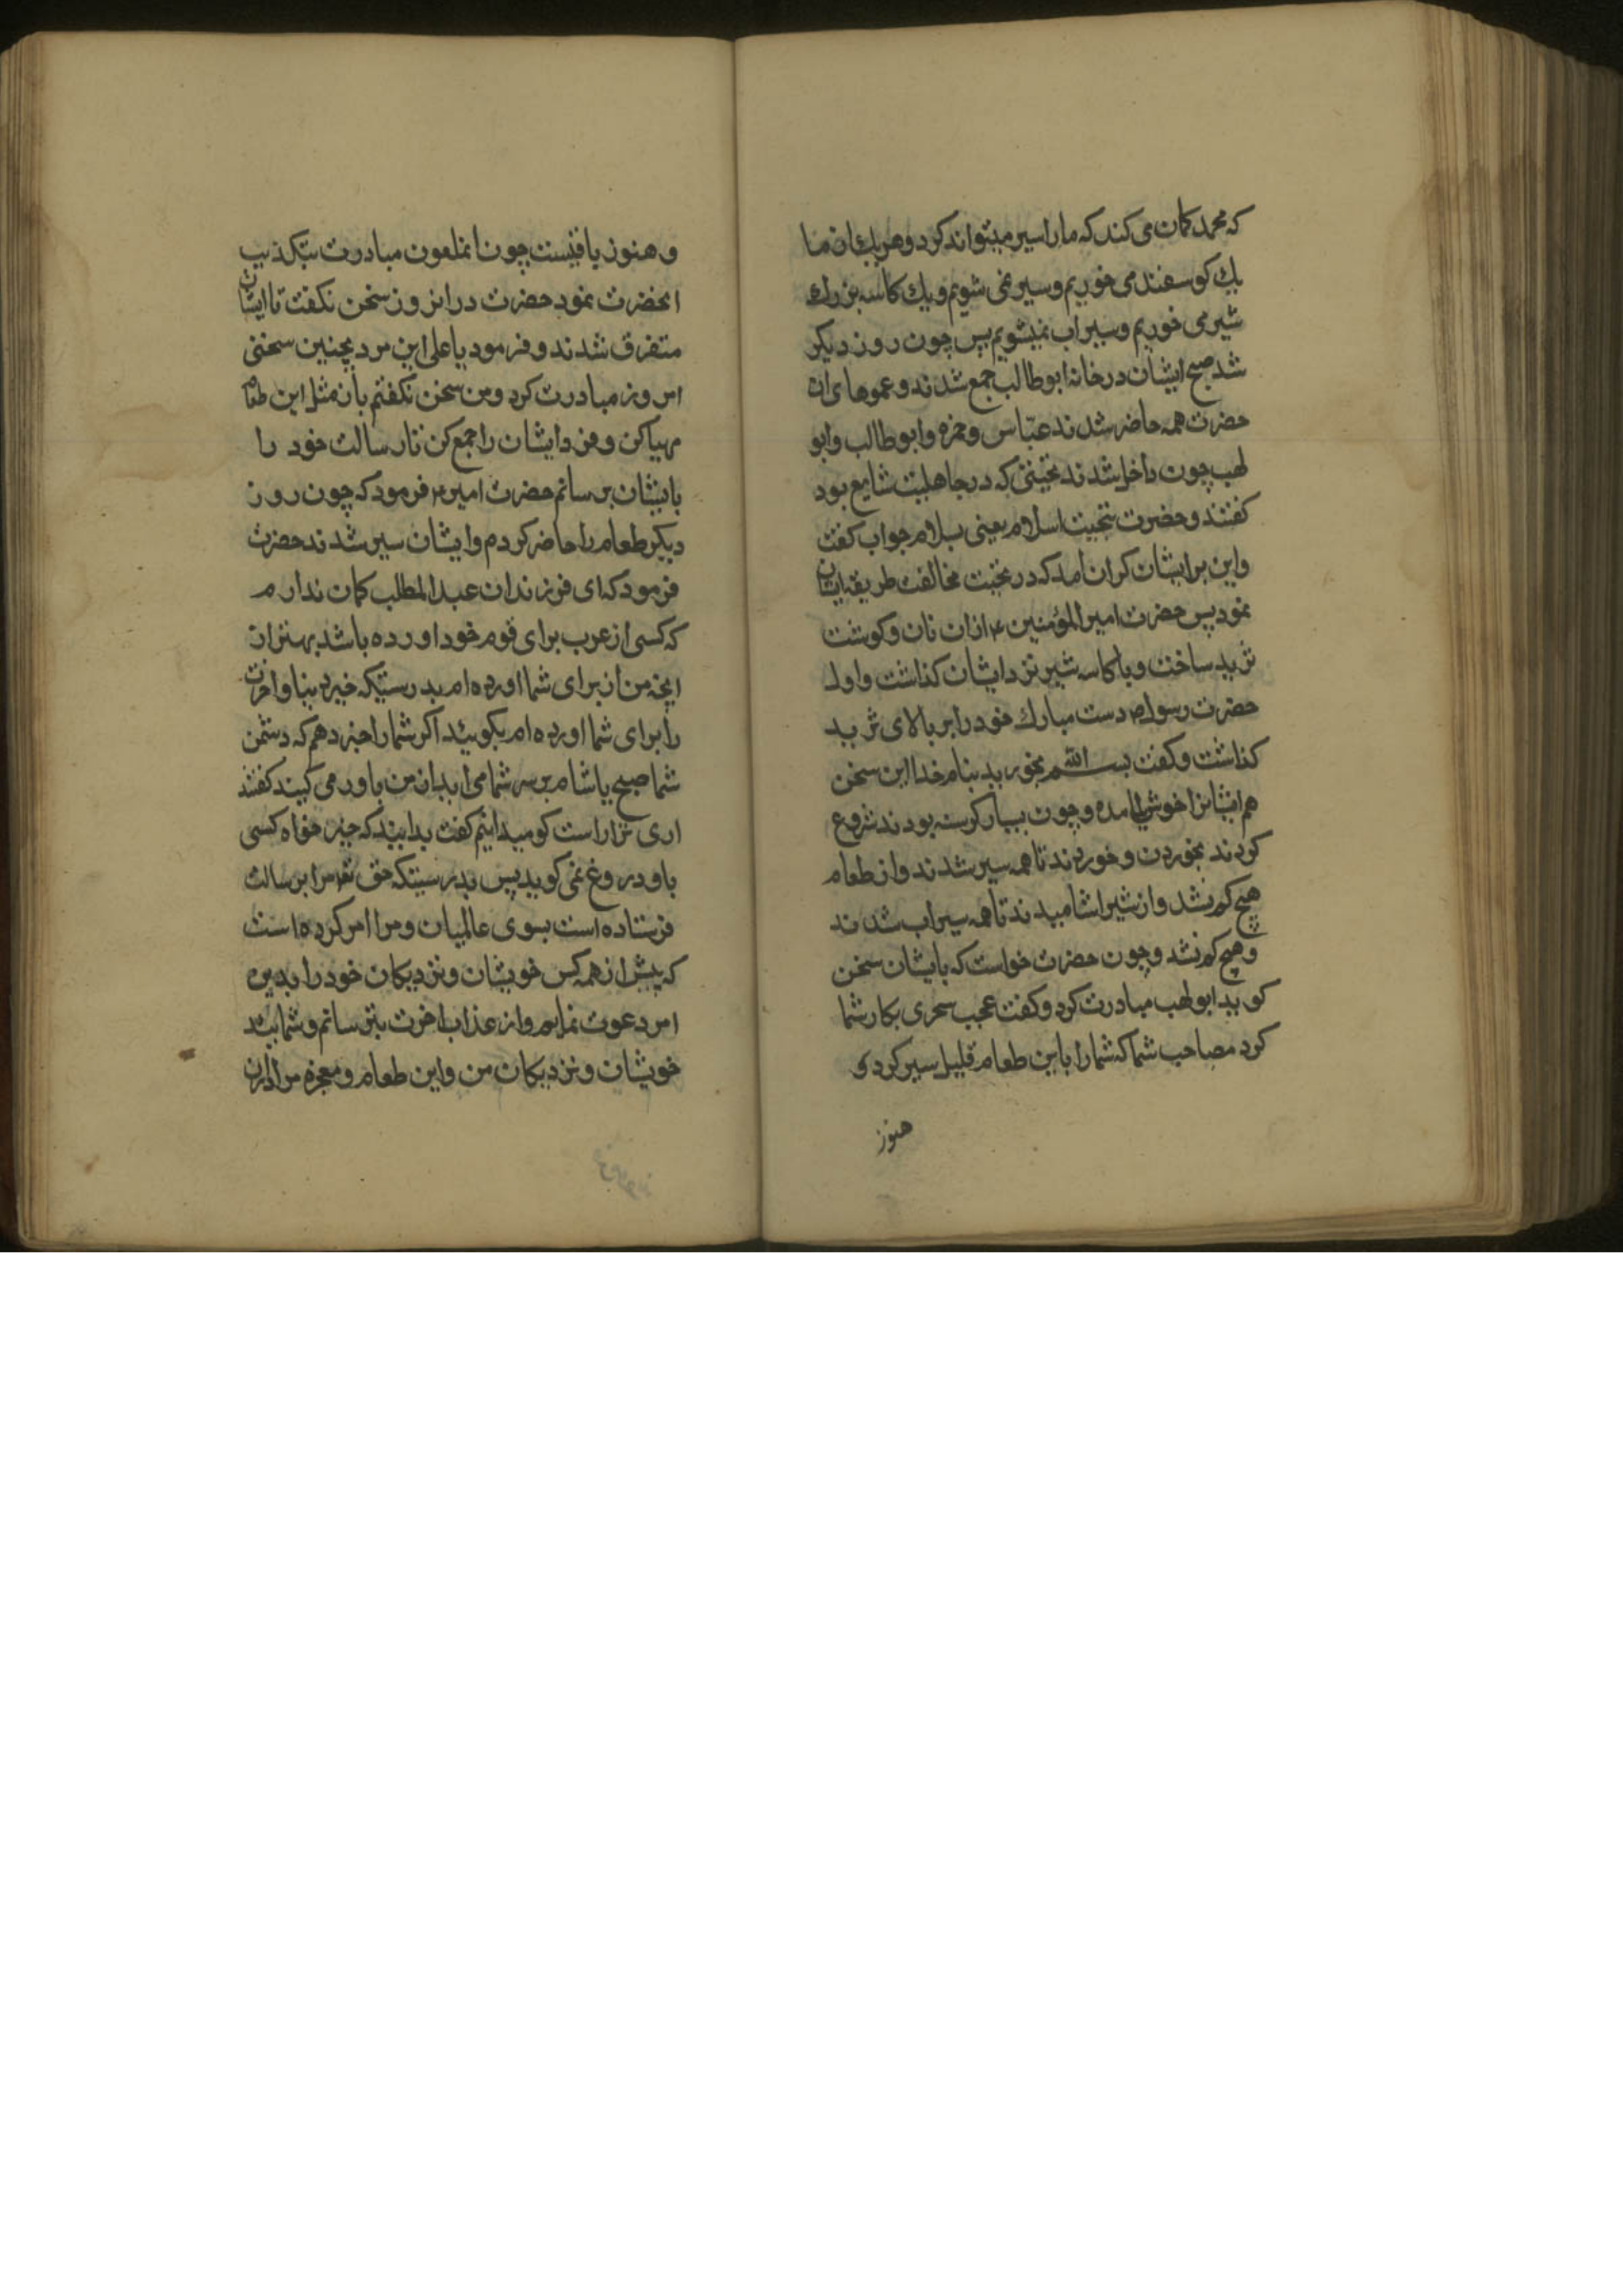 که محمد کمان می کند که ما را سیر میتواند کرد و هر یك از ما
یك کوسفند می خوریم و سیر نمی شویم و یك کاسه بزرك
شیر می خوریم و سیراب نمیشویم پس چون روز دیکر
شد صبح ایشان در خانه ابوطالب جمع شدند و عموهای ان
حضرت همه حاضر شدند عبّاس و حمزه و ابوطالب و ابو
لهب چون داخل شدند تحیّتی که در جاهلیت شایع بود
کفتند و حضرت بتحیت اسلام یعنی بسلام جواب کفت
و این بر ایشان کران امد که در تحیّت مخالفت طریقه ایشان
نمود پس حضرت امیر المؤمنین ع از ان نان و کوشت
ثرید ساخت و با کاسه شیر نزد ایشان کذاشت و اول
حضرت رسول ص دست مبارك خود را بر بالای ثرید
کذاشت و کفت بسم الله بخورید بنام خدا این سخن
هم ایشانرا خوش نیامده و چون بسیار کرسنه بودند شروع
کردند بخوردن و خوردند تا همه سیر شدند و از طعام
هیچ کم نشد و از شیر اشامیدند تا همه سیراب شدند
و هیچ کم نشد و چون حضرت خواست که با یشان سخن
کوید ابولهب مبادرت کرد و کفت عجب سحری بکار شما
کرد مصاحب شما که شما را باین طعام قلیل سیر کرد و
هنوز
و هنوز باقیست چون انملعون مبادرت بتکذیب
انحضرت نمود حضرت در انروز سخن نکفت تا ایشان
متفرق شدند و فرمود یا علی این مرد بچنین سخنی
امروز مبادرت کرد و من سخن نکفتم باز مثل این طعام
مهیا کن و فردا ایشان را جمع کن تا رسالت خود را
بایشان برسانم حضرت امیر ع فرمود که چون روز
دیکر طعام را حاضر کردم و ایشان سیر شدند حضرت
فرمود که ای فرزندان عبد المطلب کمان ندارم
که کسی از عرب برای قوم خود اورده باشد بهتر از
انچه من از برای شما اورده ام بدرستیکه خیر دنیا و اخرت
را برای شما اورده ام بکوئید اکر شما را خبر دهم که دشمن
شما صبح یا شام بر سر شما می اید از من باور می کنید کفتند
اری ترا راست کو میدانیم کفت بدانید که خیر خواه کسی
باو دروغ نمی کوید پس بدرستیکه حق تعا مرا برسالت
فرستاده است بسوی عالمیان و مرا امر کرده است
که پیش از همه کس خویشان و نزدیکان خود را بدین
امر دعوت نمایم و از عذاب اخرت بترسانم و شمائید
خویشان و نزدیکان من و این طعام و معجزه مرا